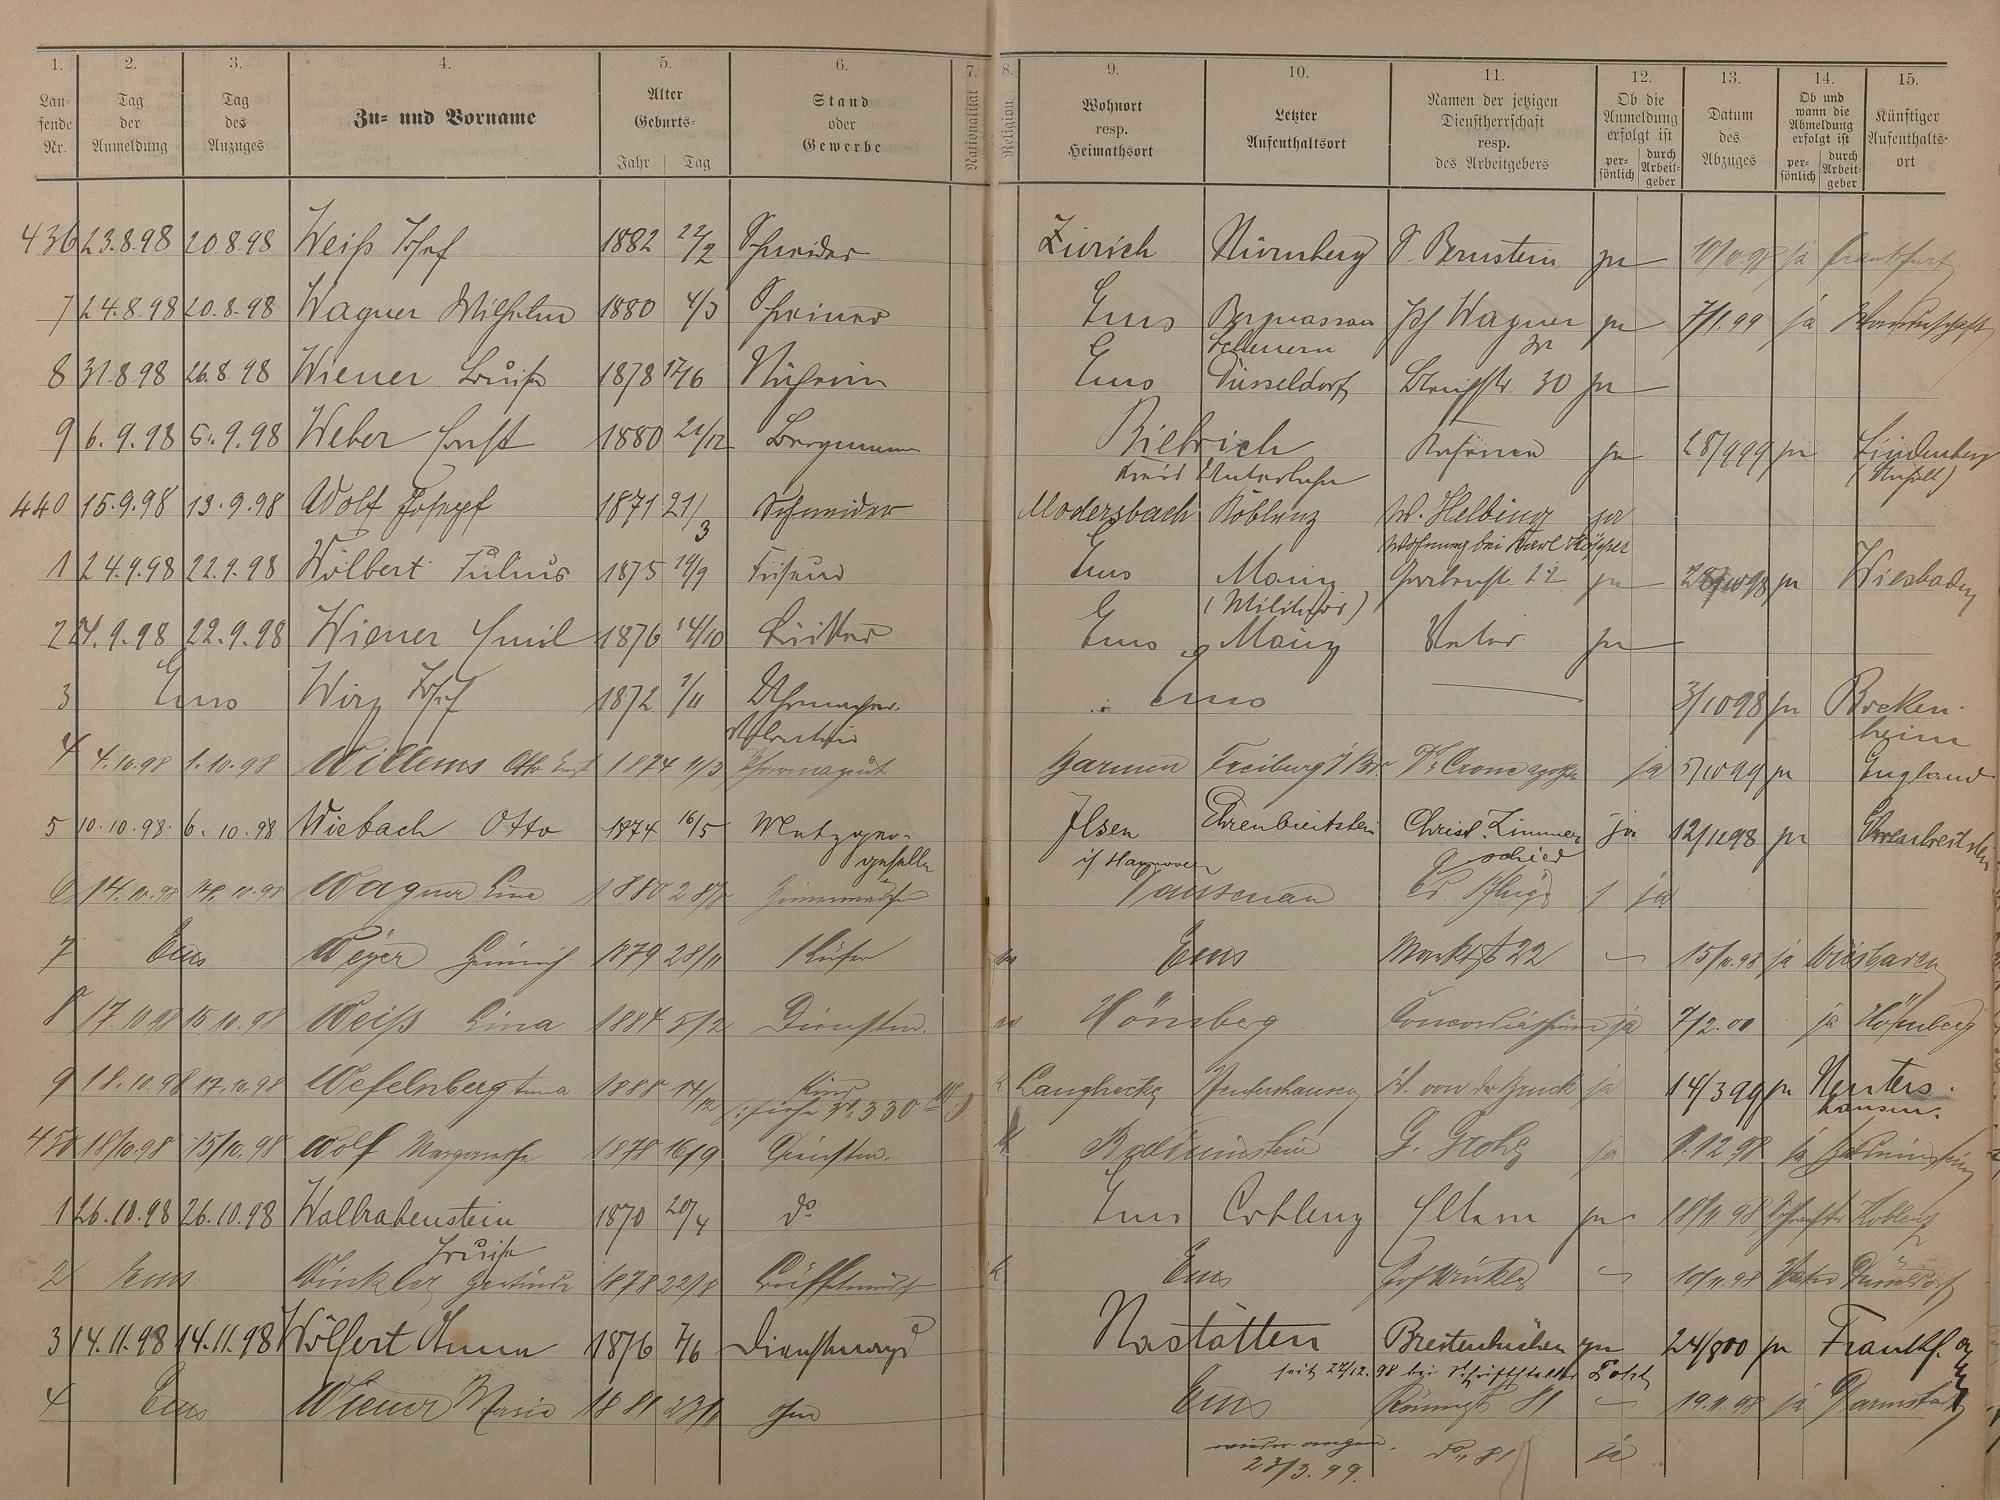 1. 2. 3. 4. 5. 6. 7. 8. 9. 10. 11. 12. 13. 14. 15.
Lau-
fende
Nr.
Tag
der
Anmeldung
Tag
des
Anzuges
Zu- und Vorname
Alter
Geburts-
Jahr Tag
Stand
oder
Gewerbe
Nationalität
Religion
Wohnort
resp.
Heimathsort
Letzter
Aufenthaltsort
Namen der jetzigen
Dienstherrschaft
resp.
des Arbeitgebers
Ob die
Anmeldung
erfolgt ist
per-
sönlich
durch
Arbeit-
geber
Datum
des
Abzuges
Ob und
wann die
Abmeldung
erfolgt ist
per-
sönlich
durch
Arbeit-
geber
Künftiger
Aufenthalts-
ort
436 23.8.98 20.8.98 Weiß Josef 1882 22/2 Schneider Zürich Nürnberg S. Bernstein ja 10/11.98 ja Frankfurt
7 24.8.98 20.8.98 Wagner Wilhelm 1880 4/3 Schreiner Ems Bergnassau Jos Wagner ja 7/1.99 ja
Scheuern
8 31.8.98 26.8.98 Wiener Louise 1878 17/6 Näherin Ems Düsseldorf 30 ja
9 6.9.98 5.9.98 Weber Ernst 1880 21/12 Bergmann Biebrich ja 28/9 99 ja Lindenberg
Kreis Unterlahn (Anhalt)
440 15.9.98 13.9.98 Wolf Joseph 1871 21/3 Schneider Modersbach Koblenz W. Helbing ja
Wohnung bei Karl
1 24.9.98 22.9.98 Wölbert Julius 1875 19/9 Friseur Ems Mainz 22 ja 28/10 98 ja Wiesbaden
(Militär)
2 24.9.98 22.9.98 Wiener Emil 1876 14/10 Ems Mainz Vater ja
3 Ems Wirz Josef 1872 1/11 Uhrmacher Ems 3/10 98 ja Bocken-
heim
4 4.10.98 1.10.98 Willems Otto Ernst 1874 11/3 Pharmazeut Barmen Freiburg i/Br. Dr Crone ja 5/10 99 ja England
5 10.10.98. 6.10.98 Wiebach Otto 1874 16/5 Metzger- Ilsen Ehrenbreitstein Christ. Zimmer ja 12/11 98 ja Ehrenbreitstein
geselle i/ Hannover schied
6 14.10.98 14.10.98 Wagner Lina 1880 Zimmermädchen Dausenau ja
7 Ems Weyer Heinrich 1879 28/11 Küfer Ems Marktst 22 15/10.98 ja Wiesbaden
8 17.10.98 15.10.98 Weiß Lina 1884 5/2 Dienstm. Hömberg ja 7/2.00 ja Hömberg
9 18.10.98 17.10.98 Wefelnberg Anna 1888 14/12 Kind Langhecke Nentershausen W. von der Bruck ja 14/3 99 ja Nenters-
siehe No. 330 hausen.
450 18/10.98 15/10.98 Wolf Margarethe 1878 16/9 Dienstm. Balduinstein G. Grohs ja 8.12.98 ja Balduinstein
1 26.10.98 26.10.98 Wallrabenstein 1870 20/4 do Ems Coblenz ja 18/11.98 Koblenz
Louise
2 Ems Winkler Gertrude 1878 22/8 Büffetmädch Ems Jos Winkler 10/11.98 Vater Düsseldorf
3 14.11.98 14.11.98 Wölfert Anna 1876 7/6 Dienstmagd Nastätten ja 24/8 00 ja Frankf. a/
seit 27/12.98 bei Schriftsteller
4 Ems Wiener Maria 1881 23/11 ohne Ems Römerst 81 19.11.98 ja Darmstadt
wieder angem. do 81 ja
23/3.99.